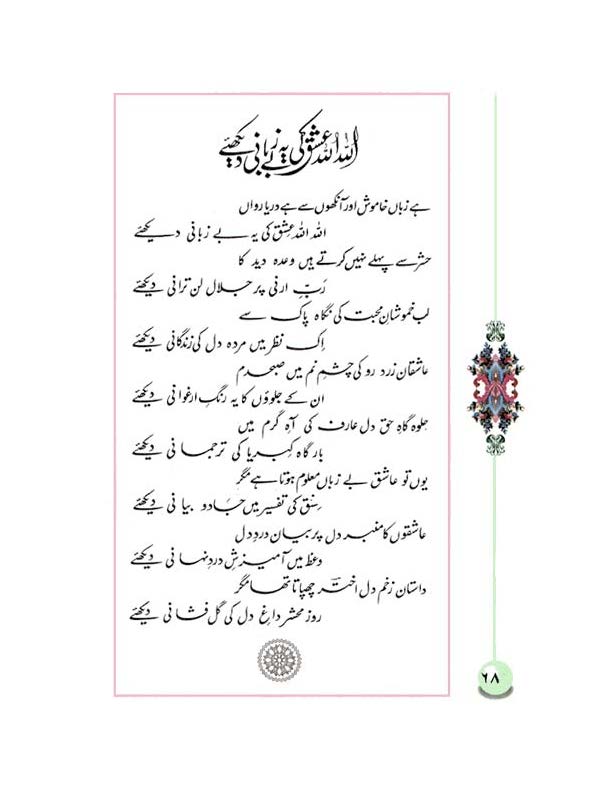 اللہ اللہ عشق کی یہ بے زبانی دیکھئے
ہے زباں خاموش اور آنکھوں سے ہے دریا رواں
اللہ اللہ عشق کی یہ بے زبانی دیکھئے
حشر سے پہلے نہیں کرتے ہیں وعدہ دید کا
رَبِّ ارنی پر جلال لن ترانی دیکھئے
لب خموشانِ محبت کی نگاہ پاک سے
اِک نظر میں مردہ دل کی زندگانی دیکھئے
عاشقان زرد رو کی چشمِ نم میں صبحدم
ان کے جلوؤں کا یہ رنگِ ارغوانی دیکھئے
جلوہ گاہِ حق دل عارف کی آہِ گرم میں
بارگاہ کبریا کی ترجمانی دیکھئے
یوں تو عاشق بے زباں معلوم ہوتا ہے مگر
عشق کی تفسیر میں جادو بیانی دیکھئے
عاشقوں کا منبر دل پر بیان دردِ دل
وعظ میں آمیزشِ دردِ نہانی دیکھئے
داستان زخم دل اختر چھپاتا تھا مگر
روز محشر داغِ دل کی گل فشانی دیکھئے
۶۸